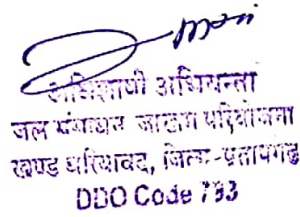 अधिशाषी अभियन्ता
जल संसाधन जाखम परियोजना
खण्ड धरियावद, जिला-प्रतापगढ़
DDO Code 793